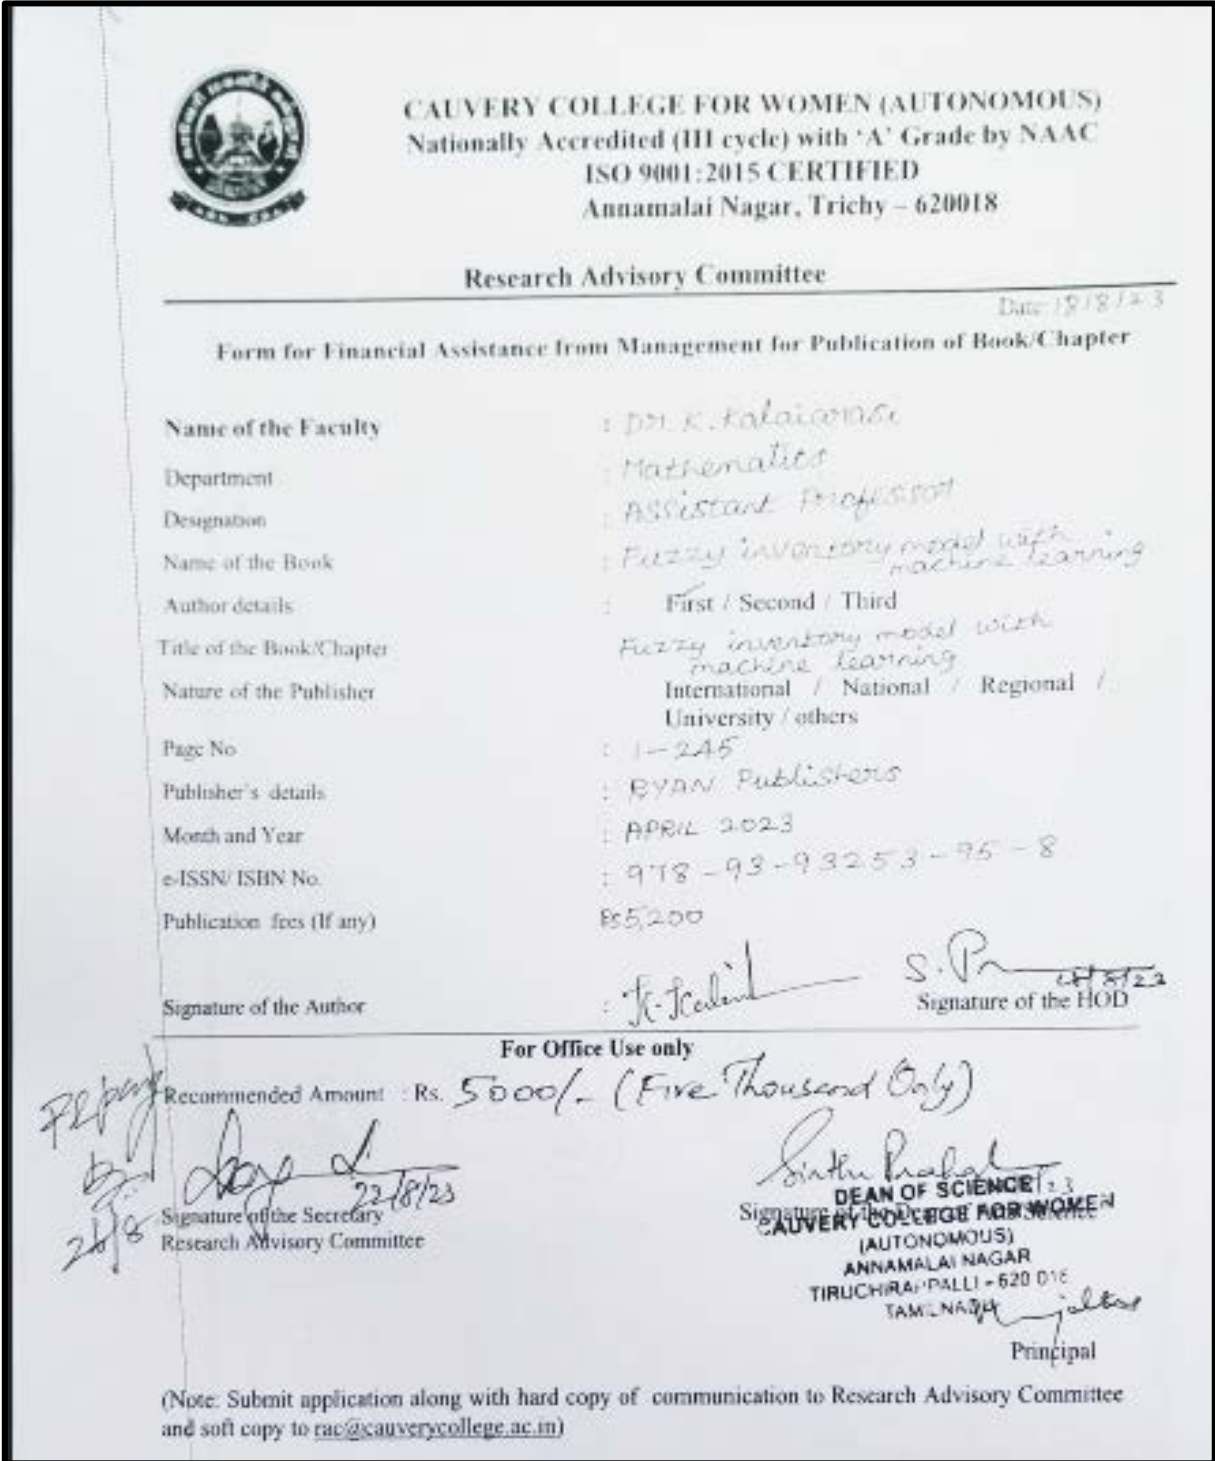 CAUVERY COLLEGE FOR WOMEN (AUTONOMOUS)
Nationally Accredited (III cycle) with ‘A’ Grade by NAAC
ISO 9001:2015 CERTIFIED
Annamalai Nagar, Trichy – 620018
Research Advisory Committee
Date: 18/8/23
Form for Financial Assistance from Management for Publication of Book/Chapter
Name of the Faculty : Dr. K. Kalaiarasi
Department : Mathematics
Designation : Assistant Professor
Name of the Book : Fuzzy inventory model with
machine learning
Author details : First / Second / Third
Title of the Book/Chapter Fuzzy inventory model with
machine learning
Nature of the Publisher International / National / Regional /
University / others
Page No : 1-245
Publisher's details : RYAN Publishers
Month and Year : APRIL 2023
e-ISSN/ ISBN No. : 978-93-93253-95-8
Publication fees (If any) Rs5,200
S. Pr
18/8/23
Signature of the Author : K. Kalai
Signature of the HOD
For Office Use only
Recommended Amount : Rs. 5000/- (Five Thousand Only)
22/8/23
Signature of the Secretary
Research Advisory Committee
DEAN OF SCIENCE
Signature of the Dean
CAUVERY COLLEGE FOR WOMEN
(AUTONOMOUS)
ANNAMALAI NAGAR
TIRUCHIRAPPALLI - 620 018
TAMILNADU
Principal
(Note: Submit application along with hard copy of communication to Research Advisory Committee
and soft copy to rac@cauverycollege.ac.in)